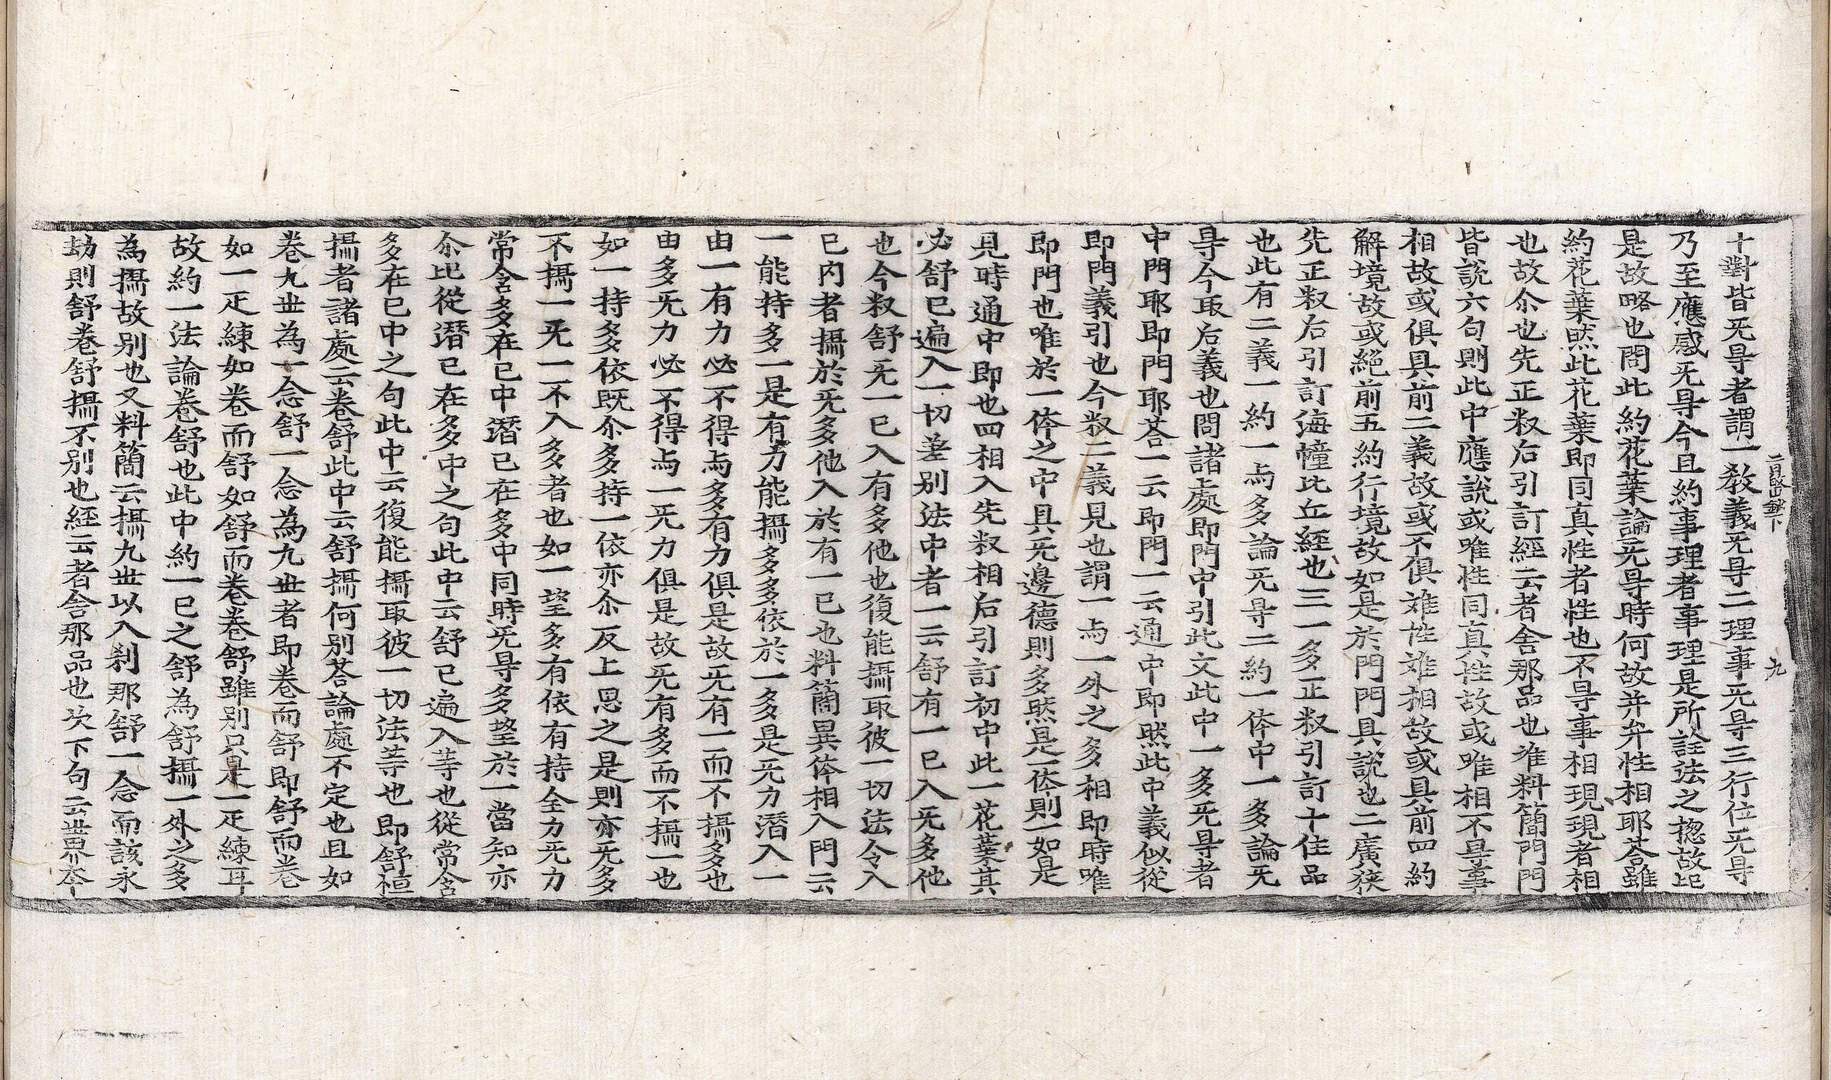 十對皆旡㝵者謂一教義旡㝵二理事旡㝵三行位旡㝵
乃至應感旡㝵今且約事理者事理是所詮法之揔故叱
是故略也問此約花葉論旡㝵時何故并弁性相耶荅雖
約花葉然此花葉即同真性者性也不㝵事相現現者相
也故尒也先正叙后引訂經云者舍那品也准料簡門門
皆說六句則此中應說或唯性同真性故或唯相不㝵事
相故或俱具前二義故或不俱䧳性䧳相故或具前四約
解境故或絕前五約行境故如是於門門具說也二廣狹
先正叙后引訂海幢比丘經也三一多正叙引訂十住品
也此有二義一約一与多論旡㝵二約一体中一多論旡
㝵今取后義也問諸處即門中引此文此中一多旡㝵者
中門耶即門耶荅一云即門一云通中即然此中義似從
即門義引也今叙二義見也謂一与一外之多相即時唯
即門也唯於一体之中具旡邊德則多然是一体則一如是
見時通中即也四相入先叙相后引訂初中此一花葉其
必舒已遍入一切差別法中者一云舒有一已入旡多他
也今叙舒旡一已入有多他也復能攝取彼一切法令入
已內者攝於旡多他入於有一已也料簡異体相入門云
一能持多一是有力能攝多多依於一多是旡力潛入一
由一有力必不得与多有力俱是故旡有一而不攝多也
由多旡力必不得与一旡力俱是故旡有多而不攝一也
如一持多依既尒多持一依亦尒反上思之是則亦旡多
不攝一旡一不入多者也如一望多有依有持全力旡力
常含多在已中潛已在多中同時旡㝵多望於一當知亦
尒此從潛已在多中之句此中云舒已遍入等也從常含
多在已中之句此中云復能攝取彼一切法等也即舒㮓
攝者諸處云卷舒此中云舒攝何別荅論處不定也且如
卷九世為一念舒一念為九世者即卷而舒即舒而卷
如一疋練如卷而舒如舒而卷卷舒雖別只是一疋練耳
故約一法論卷舒也此中約一已之舒為舒攝一外之多
為攝故別也又料簡云攝九世以入剎那舒一念而該永
劫則舒卷舒攝不別也經云者舍那品也次下句云世界夲
九